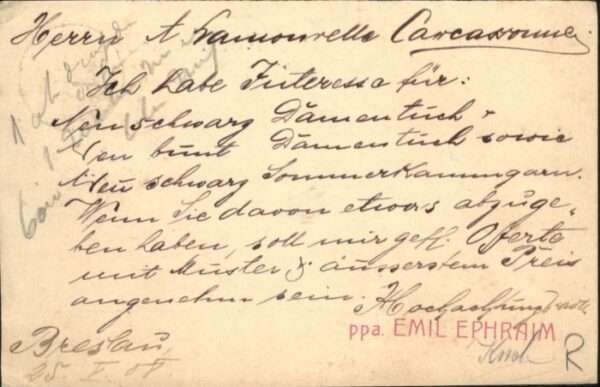 Herrn A Lamourelle Carcassonne.
Ich habe Interesse für:
Neu schwarz Damentuch,
Neu bunt Damentuch sowie
Neu schwarz Sommerkammgarn.
Wenn Sie davon etwas abzuge„
ben haben, soll mir gefl. Oferte
mit Muster & äusserstem Preis
angenehm sein. Hochachtungsvoll
ppa. EMIL EPHRAIM
Breslau,
R